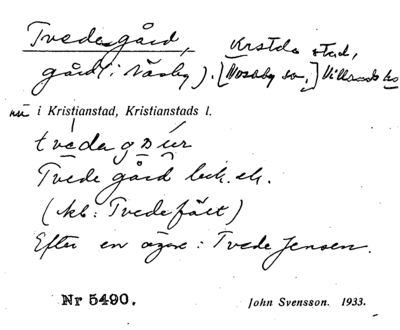 Tvedegård, Krstds stad,
gård (i Näsby). [Nosaby sn,] Villands hd
nu i Kristianstad, Kristianstads l.
Tvede gård
Efter en ägare: Tvede Jensen.
Nr 5490. John Svensson. 1933.